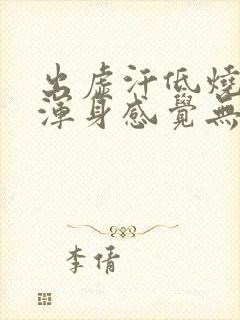 出虛汗低燒
渾身感覺無
李倩